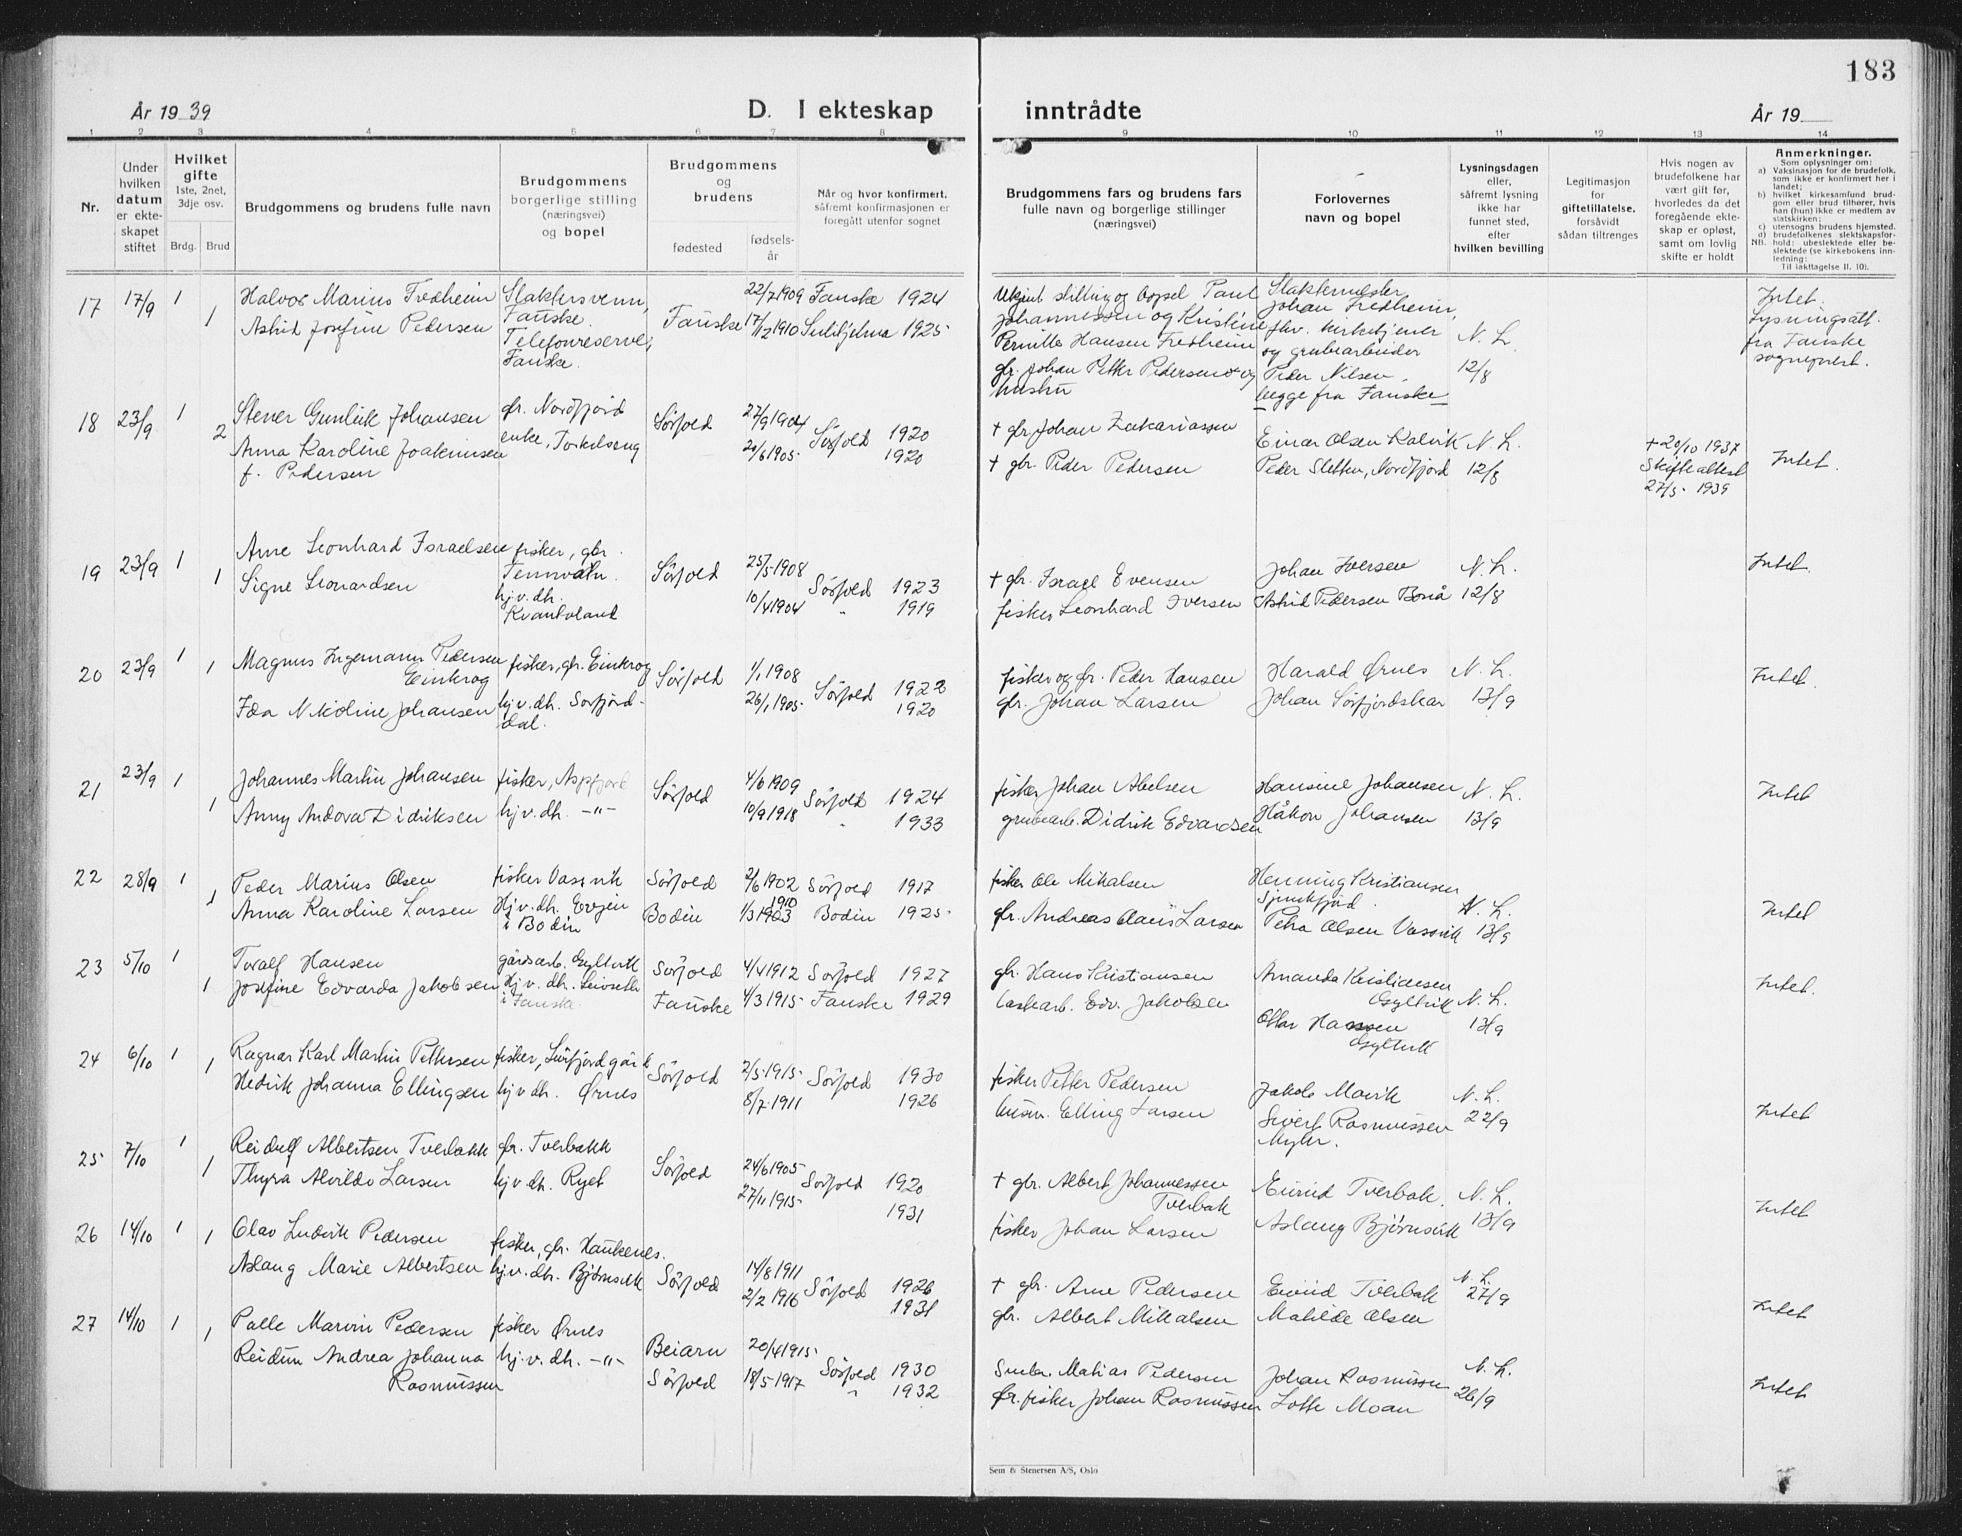 183
År 19 39
D. I ekteskap inntrådte
År 19
1 2 3 4 5 6 7 8 9 10 11 12 13 14
Nr.
Under hvilken datum er ekte- skapet stiftet
Hvilket gifte 1ste, 2net, 3dje osv.
Brdg. Brud
Brudgommens og brudens fulle navn
Brudgommens borgerlige stilling (næringsvei) og bopel
Brudgommens og brudens
fødested
fødsels- år
Når og hvor konfirmert, såfremt konfirmasjonen er foregått utenfor sognet
Brudgommens fars og brudens fars fulle navn og borgerlige stillinger (næringsvei)
Forlovernes navn og bopel
Lysningsdagen eller, såfremt lysning ikke har funnet sted, efter hvilken bevilling
Legitimasjon for giftetillatelse, forsåvidt sådan tiltrenges
Hvis nogen av brudefolkene har vært gift før, hvorledes da det foregående ekte- skap er opløst, samt om lovlig skifte er holdt
Anmerkninger.
Som oplysninger om:
a) Vaksinasjon for de brudefolk, som ikke er konfirmert her i landet;
b) hvilket kirkesamfund brud- gom eller brud tilhører, hvis han (hun) ikke er medlem av statskirken;
c) utensogns brudens hjemsted.
d) brudefolkenes slektskapsfor- hold: ubeslektede eller be- slektede (se kirkebokens inn- ledning;
NB.
Til iakttagelse II. 10).
17 17/9 1 Halvor Marius Fredheim Slaktersvenn, Fauske. 22/7 1909 Fauske 1924
1 Astrid Josefine Pedersen Telefonreserve, Fauske. Fauske 17/12 1910 Sulitjelma 1925
Ukjent stilling og bopel Paul Johannessen og Kristine Pernille Hansen Fredheim
gbr. Johan Petter Pedersen og hustru
Slaktermester Johan Fredheim, fhv. kirketjener og grubearbeider Peder Nilsen, begge fra Fauske
N. L. 12/8
Intet. Lysningsatt. fra Fauske sogneprest.
18 23/9 1 Stener Gunluk Johansen gbr. Nordfjord Sørfold 27/9 1904 Sørfold 1920
2 Anna Karoline Joakimsen f. Pedersen enke, 20/6 1905 1920
+ gbr. Johan Zakariassen Einar Olsen Kalvik N. L.
+ gbr. Peder Pedersen Peder Sletten, Nordfjord 12/8
+ 20/10 1937 Skifteattest 27/5 1939
Intet.
19 23/9 1 Arne Leonhard Israelsen fisker, gbr. Tennvatn. Sørfold 25/5 1908 Sørfold 1923
1 Signe Leonardsen hj.v.dh. Kvantoland 10/4 1904 " 1919
+ gbr. Israel Evensen Johan Iversen N. L.
fisker Leonhard Iversen Astrid Pedersen Bonå 12/8
Intet.
20 23/9 1 Magnus Ingemann Pedersen Einkrog fisker, gbr. Einkrog Sørfold 1/1 1908 Sørfold 1922
1 Ida Nikoline Johansen hj.v.dh. Sørfjord- dal. 26/1 1905 1920
fisker og gbr. Peder Hansen Harald Ørnes N. L.
gbr. Johan Larsen Johan Sørfjordskar 13/9
Intet.
21 23/9 1 Johannes Martin Johansen fisker, Aspfjord Sørfold 4/6 1909 Sørfold 1924
1 Anny Andova Didriksen hj.v.dh. -"- 10/9 1918 " 1933
fisker Johan Abelsen Hansine Johansen N. L.
grubearb. Didrik Edvardsen Håkon Johansen 13/9
Intet
22 28/9 1 Peder Marius Olsen fisker Vassvik Sørfold 2/6 1902 Sørfold 1917
1 Anna Karoline Larsen Hj.v.dh. Evjen i Bodin Bodin 1/3 1903 1910 Bodin 1925
fisker Ole Mikalsen Henning Kristiansen N. L.
gbr. Andreas Claus Larsen Petra Olsen Vassvik 13/9
Intet
23 5/10 1 Toralf Hansen gårdsarb. Gyltvik Sørfold 4/4 1912 Sørfold 1927
1 Josefine Edvarda Jakobsen Hj.v.dh. Leivset i Fauske Fauske 4/3 1915 Fauske 1929
gbr. Hans Kristiansen Amanda Kristiansen Gyltvik N. L.
Edv. Jakobsen Ottar Hansen Gyltvik 13/9
Intet.
24 6/10 1 Ragnar Karl Martin Pettersen fisker, Sørfjordgård Sørfold 2/5 1915 Sørfold 1930
1 Hedvik Johanna Ellingsen hj.v.dh. Ørnes 8/7 1911 1926
fisker Petter Pedersen Jakob Movik N. L.
husm. Elling Larsen Sivert Rasmussen 22/9
Intet
25 7/10 1 Reidulf Albertsen Tverbakk gbr. Tverbakk Sørfold 24/6 1905 Sørfold 1920
1 Thyra Alvilda Larsen hj.v.dh. Ryet 27/11 1915 1931
+ gbr. Albert Johannessen Tverbak Eivind Tverbak. N. L.
fisker Johan Larsen Aslaug Bjørnsvik 13/9
Intet
26 14/10 1 Olav Ludvik Pedersen fisker, gbr. Haukenes. Sørfold 14/8 1911 Sørfold 1926
1 Aslaug Marie Albertsen hj.v.dh. Bjørnsvik 2/2 1916 1931
+ gbr. Arne Pedersen Eivind Tverbak N. L.
gbr. Albert Mikalsen Matilde Olsen 27/9
Intet
27 14/10 1 Palle Marvin Pedersen fisker Ørnes Beiarn 20/4 1915 Sørfold 1930
1 Reidun Andrea Johanna Rasmussen hj.v.dh. -"- Sørfold 18/5 1917 " 1932
Matias Pedersen Johan Rasmussen N. L.
gbr. fisker Johan Rasmussen Lotte Moan 26/9
Intet
Sem & Stenersen A/S, Oslo